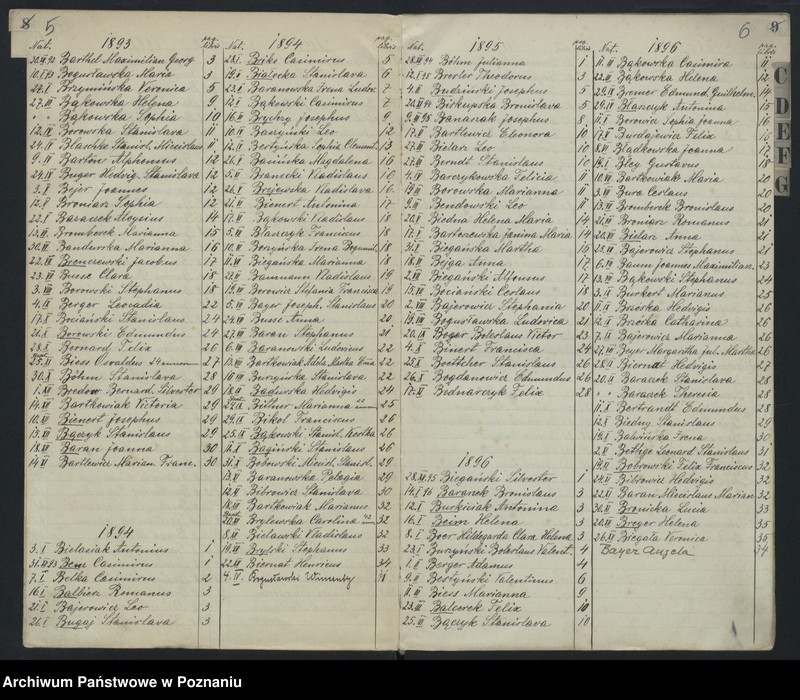 8 5
Nat. 1893 pag. libri
30.XI.92 Barthel Maximilian Georg 3
10.I.93 Bogusławska Maria 3
24.I Brzymińska Veronica 5
27.III Bąkowska Helena 9
" " Bąkowska Sophia 10
12.IV Borowska Stanislava 11
24.IV Blaschke Stanisl. Miecislaus 11
9.IV Barton Alphonsus 12
24.IV Buger Hedvig. Stanislava 12
3.I Bejer Joannes 12
12.I Broniarz Sophia 12
22.I Baraniek Aloysius 14
13.VI Bromberek Marianna 15
30.VI Bandurska Marianna 16
22.VII Bienczewski Jacobus 17
23.VII Busse Clara 18
3.VIII Borowski Stephanus 18
4.IX Berger Leocadia 22
17.X Breiański Stanislaus 24
21.X Borowski Edmundus 24
28.X Bernard Felix 26
25.II Biess Osvaldus 27
30.X Böhm Stanislava 28
1.XII Bredow Bernard. Silvester 29
14.XII Bartkowiak Victoria 29
10.XII Bienert Josephus 29
13.XII Bączyk Stanislaus 29
18.XII Baran Joanna 30
14.II Bartlewicz Marian Franc. 30
1894
3.I Bielasiak Antonius 1
31.XII.93 Bem Casimirus 1
7.I Belka Casimirus 2
16.I Balbierz Romanus 3
21.I Bajerowicz Leo 3
26.I Bugaj Stanislava 3
Nat. 1894 pag. libri
28.I Briks Casimirus 5
19.I Białecka Stanislava 6
23.II Baranowska Irena Ludov. 7
12.I Bąkowski Casimirus 7
16.II Brychy Josephus 9
10.IV Baszyński Leo 12
12.IV Bestyńska Sophia Clement. 13
26.I Basińska Magdalena 16
5.II Branecki Vladislaus 10
26.I Brejewska Vladislava 16
21.VI Bienert Antonina 17
17.VI Bąkowski Vladislaus 18
5.VI Blaszczyk Franciscus 18
10.VII Borzyńska Irena Bogumil. 18
11.VII Biegańska Marianna 18
22.VII Baumann Vladislaus 19
19.VII Borowicz Stefania Francisca 19
5.VII Bayer Joseph. Stanislaus 20
24.VII Busse Anna 20
27.VIII Baran Stephanus 21
6.IX Baranowski Ludovicus 22
13.VIII Bartkowiak Adela Martha Emma 22
16.VIII Burzyńska Stanislava 22
18.IX Badiewska Hedvigis 24
24.IX Büttner Marianna 25
29.IX Bikol Franciscus 26
25.IX Bąkowski Stanisl. Kostka 26
16.X Bagiński Stanislaus 26
31.X Bobowski Miecisl. Stanisl. 29
13.XI Baranowska Pelagia 29
12.XI Bibrowicz Stanislava 30
18.XII Bartkowiak Marianus 32
20.XII Brylewska Carolina 32
8.XII Bielawski Vladislaus 32
19.XII Brylski Stephanus 33
22.XII Biernat Henricus 34
1895
28.XII.94 Böhm Julianna 1
12.I.95 Brosler Theodorus 2
4.II Budziński Josephus 5
20.XII.94 Biskupska Bronislava 5
9.III.95 Banaszak Josephus 8
17.II Bartlewicz Eleonora 10
27.III Bielarz Leo 10
27.III Berndt Stanislaus 10
4.IV Barczykowska Felicia 11
19.III Borowska Marianna 11
9.IV Bendowski Leo 11
20.I Biedna Helena Maria 14
17.I Bartoszewska Janina Maria 14
31.I Biegańska Martha 16
18.VI Bejga Anna 17
21.VI Biegański Alfonsus 17
15.VII Bociański Ceslaus 18
2.VIII Bajerowicz Stephania 20
19.VIII Bogusławska Ludovica 21
20.IX Boger Boleslaus Victor 23
4.X Binert Francisca 24
25.X Boettcher Stanislaus 26
26.X Bogdanowicz Edmundus 26
17.XI Bednarczyk Felix 28
1896
28.XII.95 Biegański Silvester 1
14.I.96 Baranek Bronislaus 3
12.I Burkiciak Antonina 3
16.I Beim Helena 3
8.I Beer Hildegarda Clara Helena 3
23.I Burzyński Boleslaus Valent. 4
1.II Berger Adamus 4
9.II Bestyński Valentinus 6
11.III Biess Marianna 9
23.III Balcerek Felix 10
25.III Bączyk Stanislava 10
6 9
Nat. 1896 pag. libri
11.III Bąkowska Casimira 11
22.III Bąkowska Helena 12
29.IV Bremer Edmund. Guilhelm. 14
29.IV Błaszczyk Antonina 15
11.I Borowicz Sophia Joanna 16
17.I Burdajewicz Felix 16
8.VI Bladkowska Joanna 17
19.I Błey Gustavus 18
10.VI Bartkowiak Maria 20
3.VII Bura Ceslaus 20
13.VII Bromberek Bronislaus 20
21.VII Broniarz Romanus 21
20.VII Bielarz Anna 21
25.VII Bajerowicz Stephanus 21
6.VIII Baum Joannes Maximilian. 23
13.VIII Bąkowski Stephanus 24
3.IX Burkert Marianus 25
11.IX Brodka Hedvigis 26
12.IX Brodka Catharina 26
7.IX Bajerowicz Marianna 26
27.VIII Beyer Margaritha Jul. Martha 26
28.IX Biernat Hedvigis 27
20.IX Baraniek Stanislava 28
" " Baraniek Theresia 28
11.X Bertrandt Edmundus 28
12.X Biedny Stanislaus 29
19.X Balwińska Irena 30
2.XI Bethge Leonard Stanislaus 31
19.XI Bobrowski Felix Franciscus 32
24.XI Bibrowicz Hedvigis 32
22.XI Baran Miecislaus Marian 32
30.XI Bronicka Lucia 33
20.XII Breyer Helena 35
26.XII Biegała Veronica 35
Bayer Angela 34
C
D
E
F
G
Archiwum Państwowe w Poznaniu